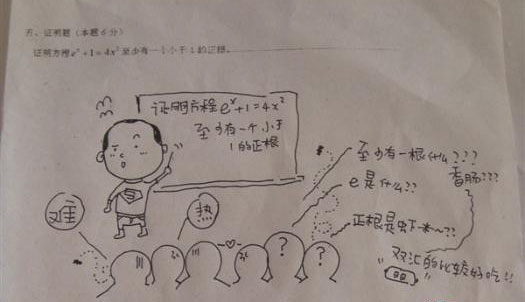 五、证明题（本题6分）
证明方程eˣ+1=4x²至少有一个小于1的正根。
证明方程eˣ+1=4x²
至少有一个小于
1的正根
至少有一根什么???
香肠???
e是什么??
难
热
正根是虫下米~??
? ?
"双汇的比较好吃!!"